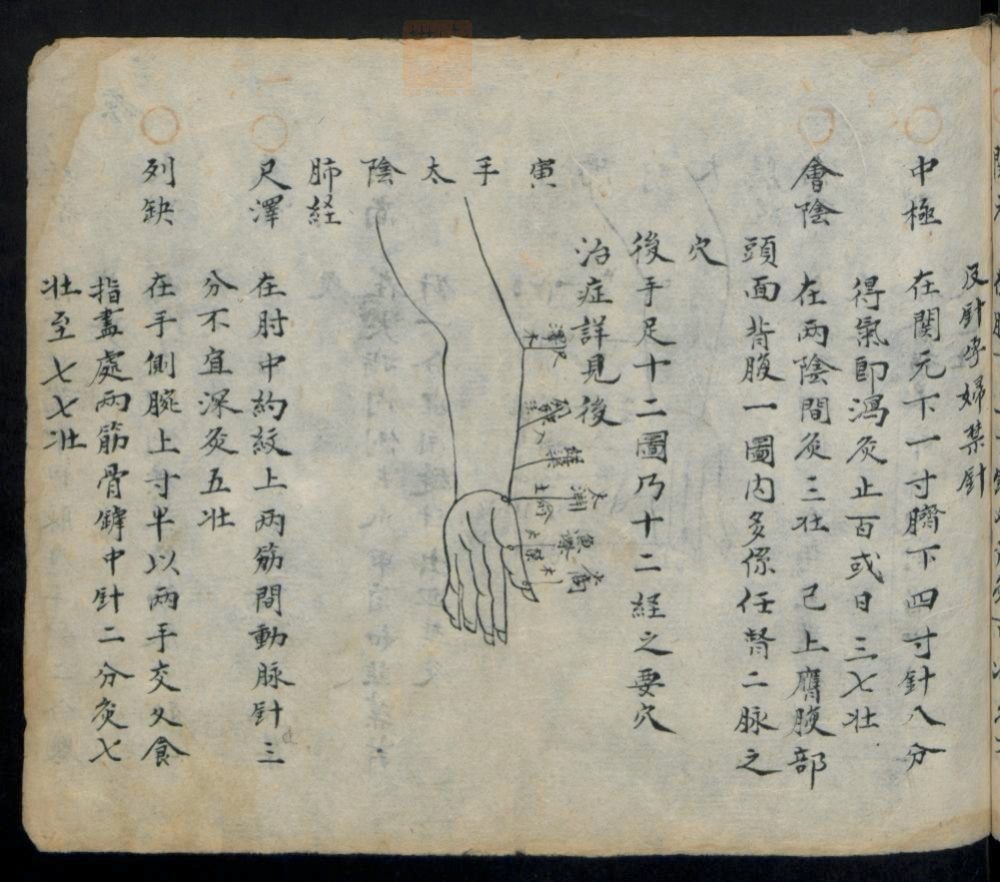 及針孕婦禁針
中極 在関元下一寸臍下四寸針八分
得氣即瀉灸止百或日三七壯
會陰 在兩陰間灸三壯 已上膺腴部
頭面背腹一圖内多係任督二脉之
穴
後手足十二圖乃十二経之要穴
治症詳見後
寅手太陰
肺経
尺澤 在肘中約紋上兩筋間動脉針三
分不宜深灸五壯
列缺 在手側腕上寸半以兩手交叉食
指盡處兩筋骨鏬中針二分灸七
壯至七七壯
太淵
魚際